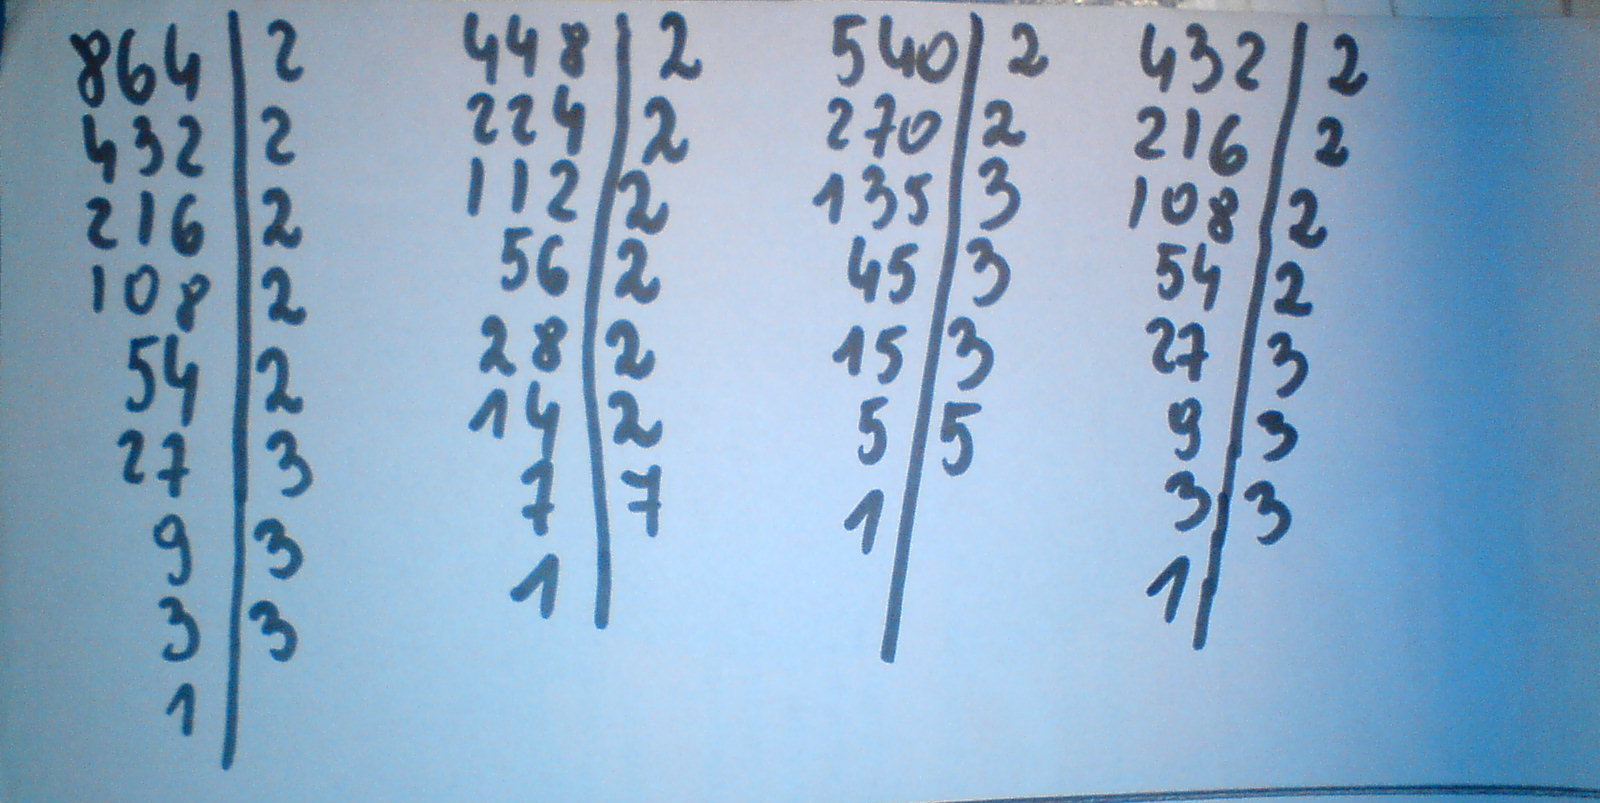 864 | 2
432 | 2
216 | 2
108 | 2
54 | 2
27 | 3
9 | 3
3 | 3
1 |
448 | 2
224 | 2
112 | 2
56 | 2
28 | 2
14 | 2
7 | 7
1 |
540 | 2
270 | 2
135 | 3
45 | 3
15 | 3
5 | 5
1 |
432 | 2
216 | 2
108 | 2
54 | 2
27 | 3
9 | 3
3 | 3
1 |